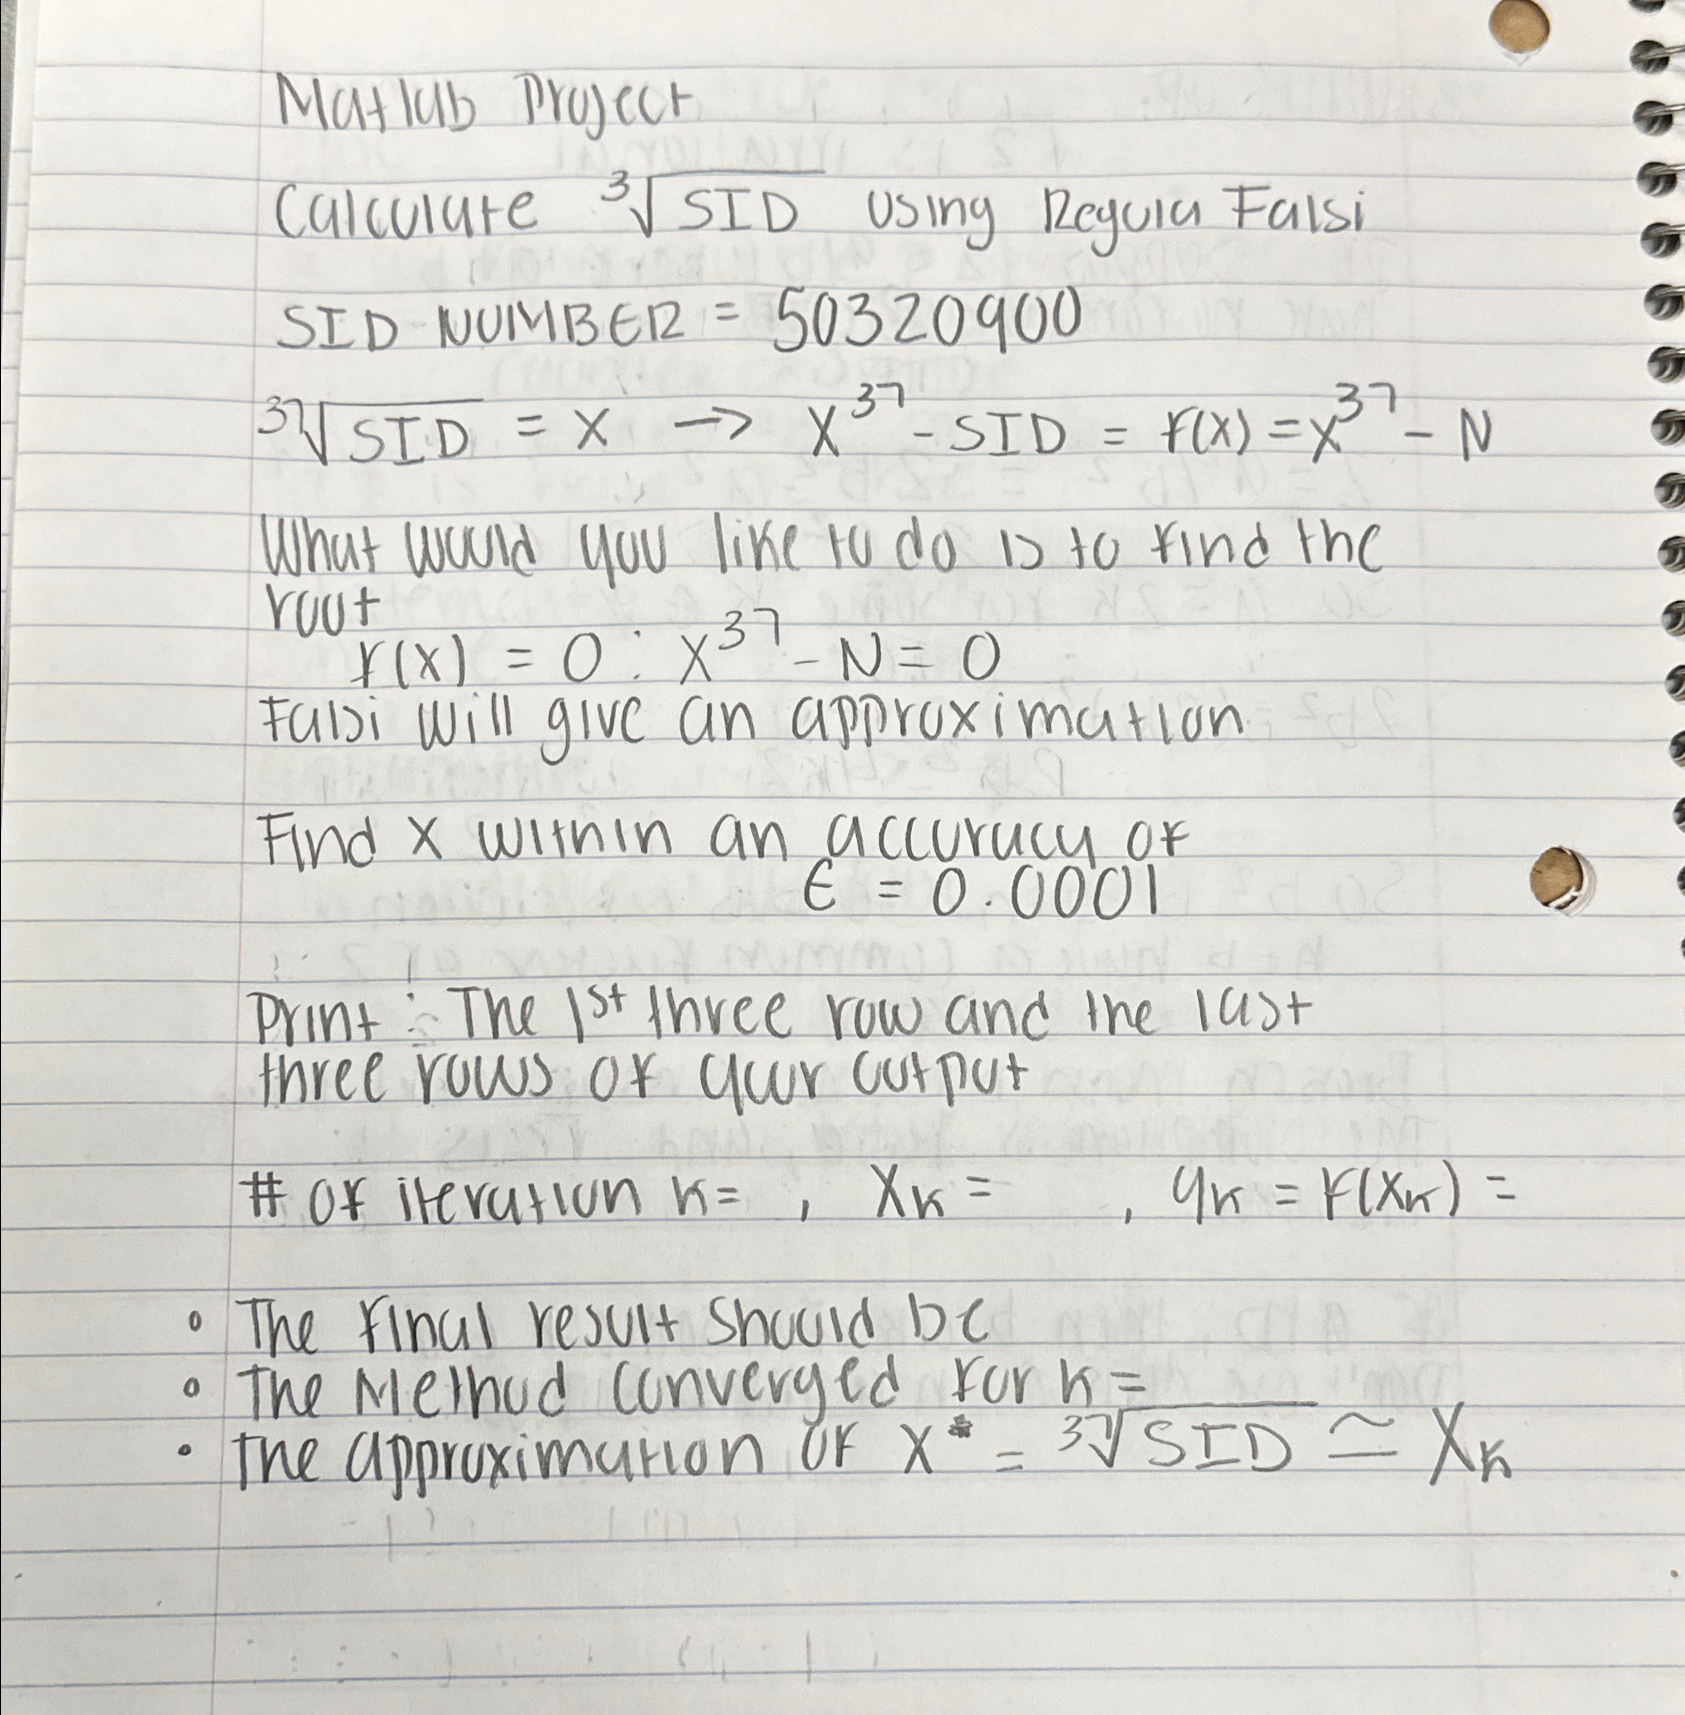 Matlab Project
Calculate ³√SID using Regula Falsi
SID NUMBER = 50320900
³⁷√SID = x → x³⁷ - SID = f(x) = x³⁷ - N
What would you like to do is to find the
root
f(x) = 0 : x³⁷ - N = 0
Falsi will give an approximation
Find x within an accuracy of
ϵ = 0.0001
Print : The 1st three row and the last
three rows of your output
# of iteration k= , xₖ = , yₖ = f(xₖ) =
• The final result should be
• The Method converged for k =
• The approximation of x* = ³⁷√SID ≃ xₖ